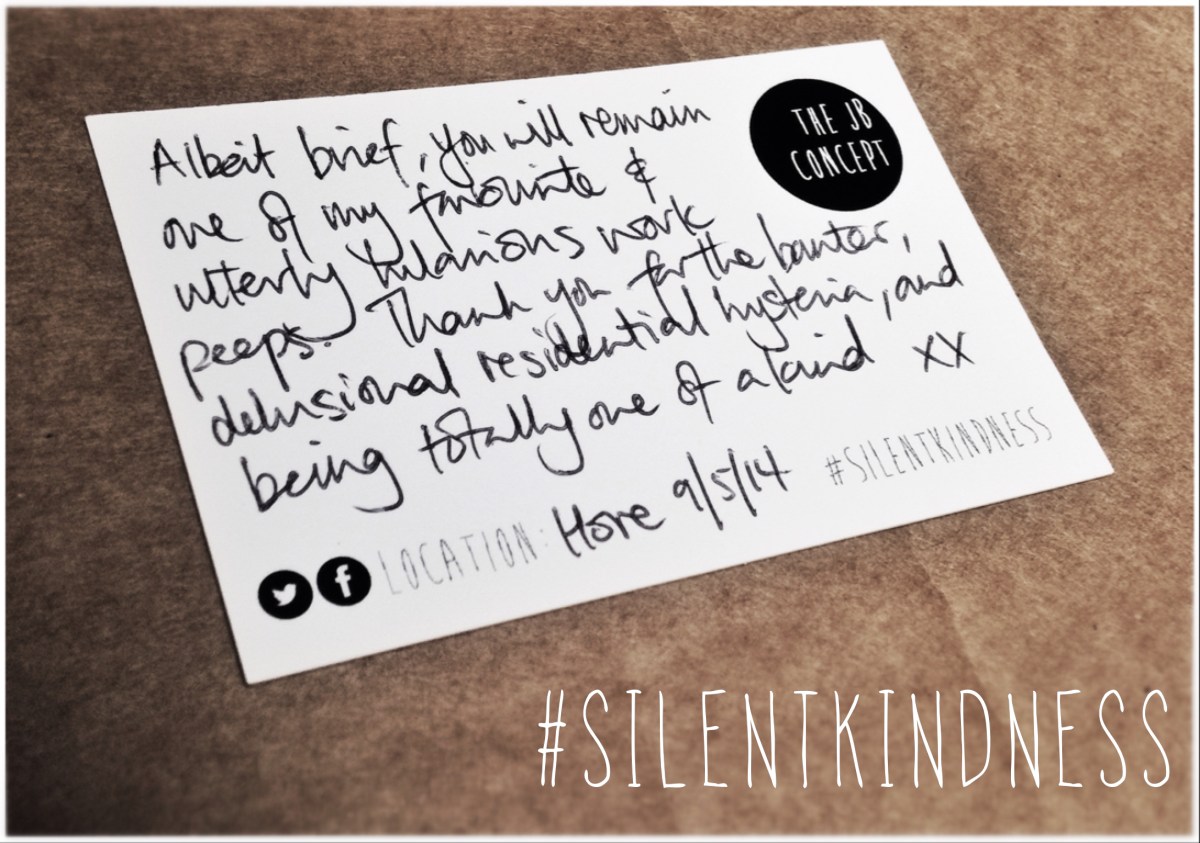 THE JB
CONCEPT
Albeit brief, you will remain
one of my favourite &
utterly hilarious work
peeps. Thank you for the banter,
delusional residential hysteria, and
being totally one of a kind xx
#SILENTKINDNESS
LOCATION: Hove 9/5/14
#SILENTKINDNESS